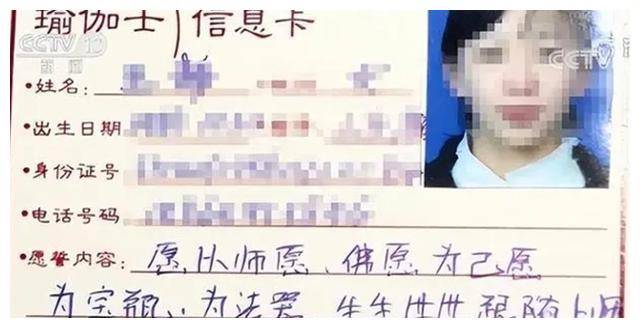 瑜伽士信息卡
CCTV 13
新闻
CCTV
•姓名:
•出生日期
•身份证号
•电话号码
•愿誓内容: 愿以师愿、佛愿为己愿
为宝瓶、为法器 生生世世跟随上师